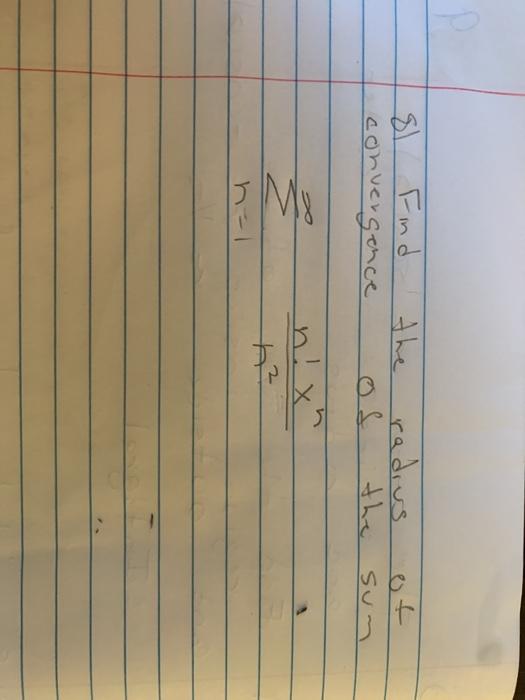 8) Find the radius of
convergence of the sum
∞
∑ n! xⁿ
n=1 n²